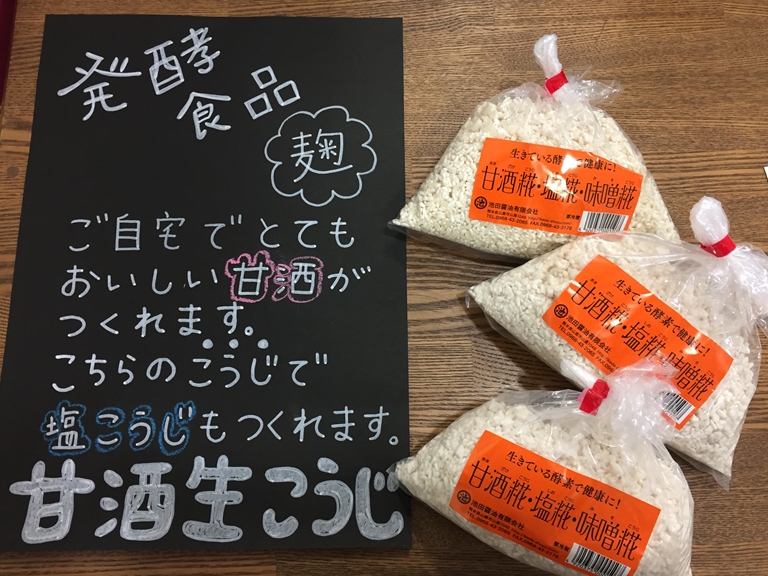 発酵
食品
麹
ご自宅でとても
おいしい甘酒が
つくれます。
こちらのこうじで
塩こうじもつくれます。
甘酒生こうじ
生きている酵素で健康に!
甘酒糀・塩糀・味噌糀
池田醤油有限会社
要冷蔵
生きている酵素で健康に!
甘酒糀・塩糀・味噌糀
池田醤油有限会社
生きている酵素で健康に!
甘酒糀・塩糀・味噌糀
池田醤油有限会社
要冷蔵